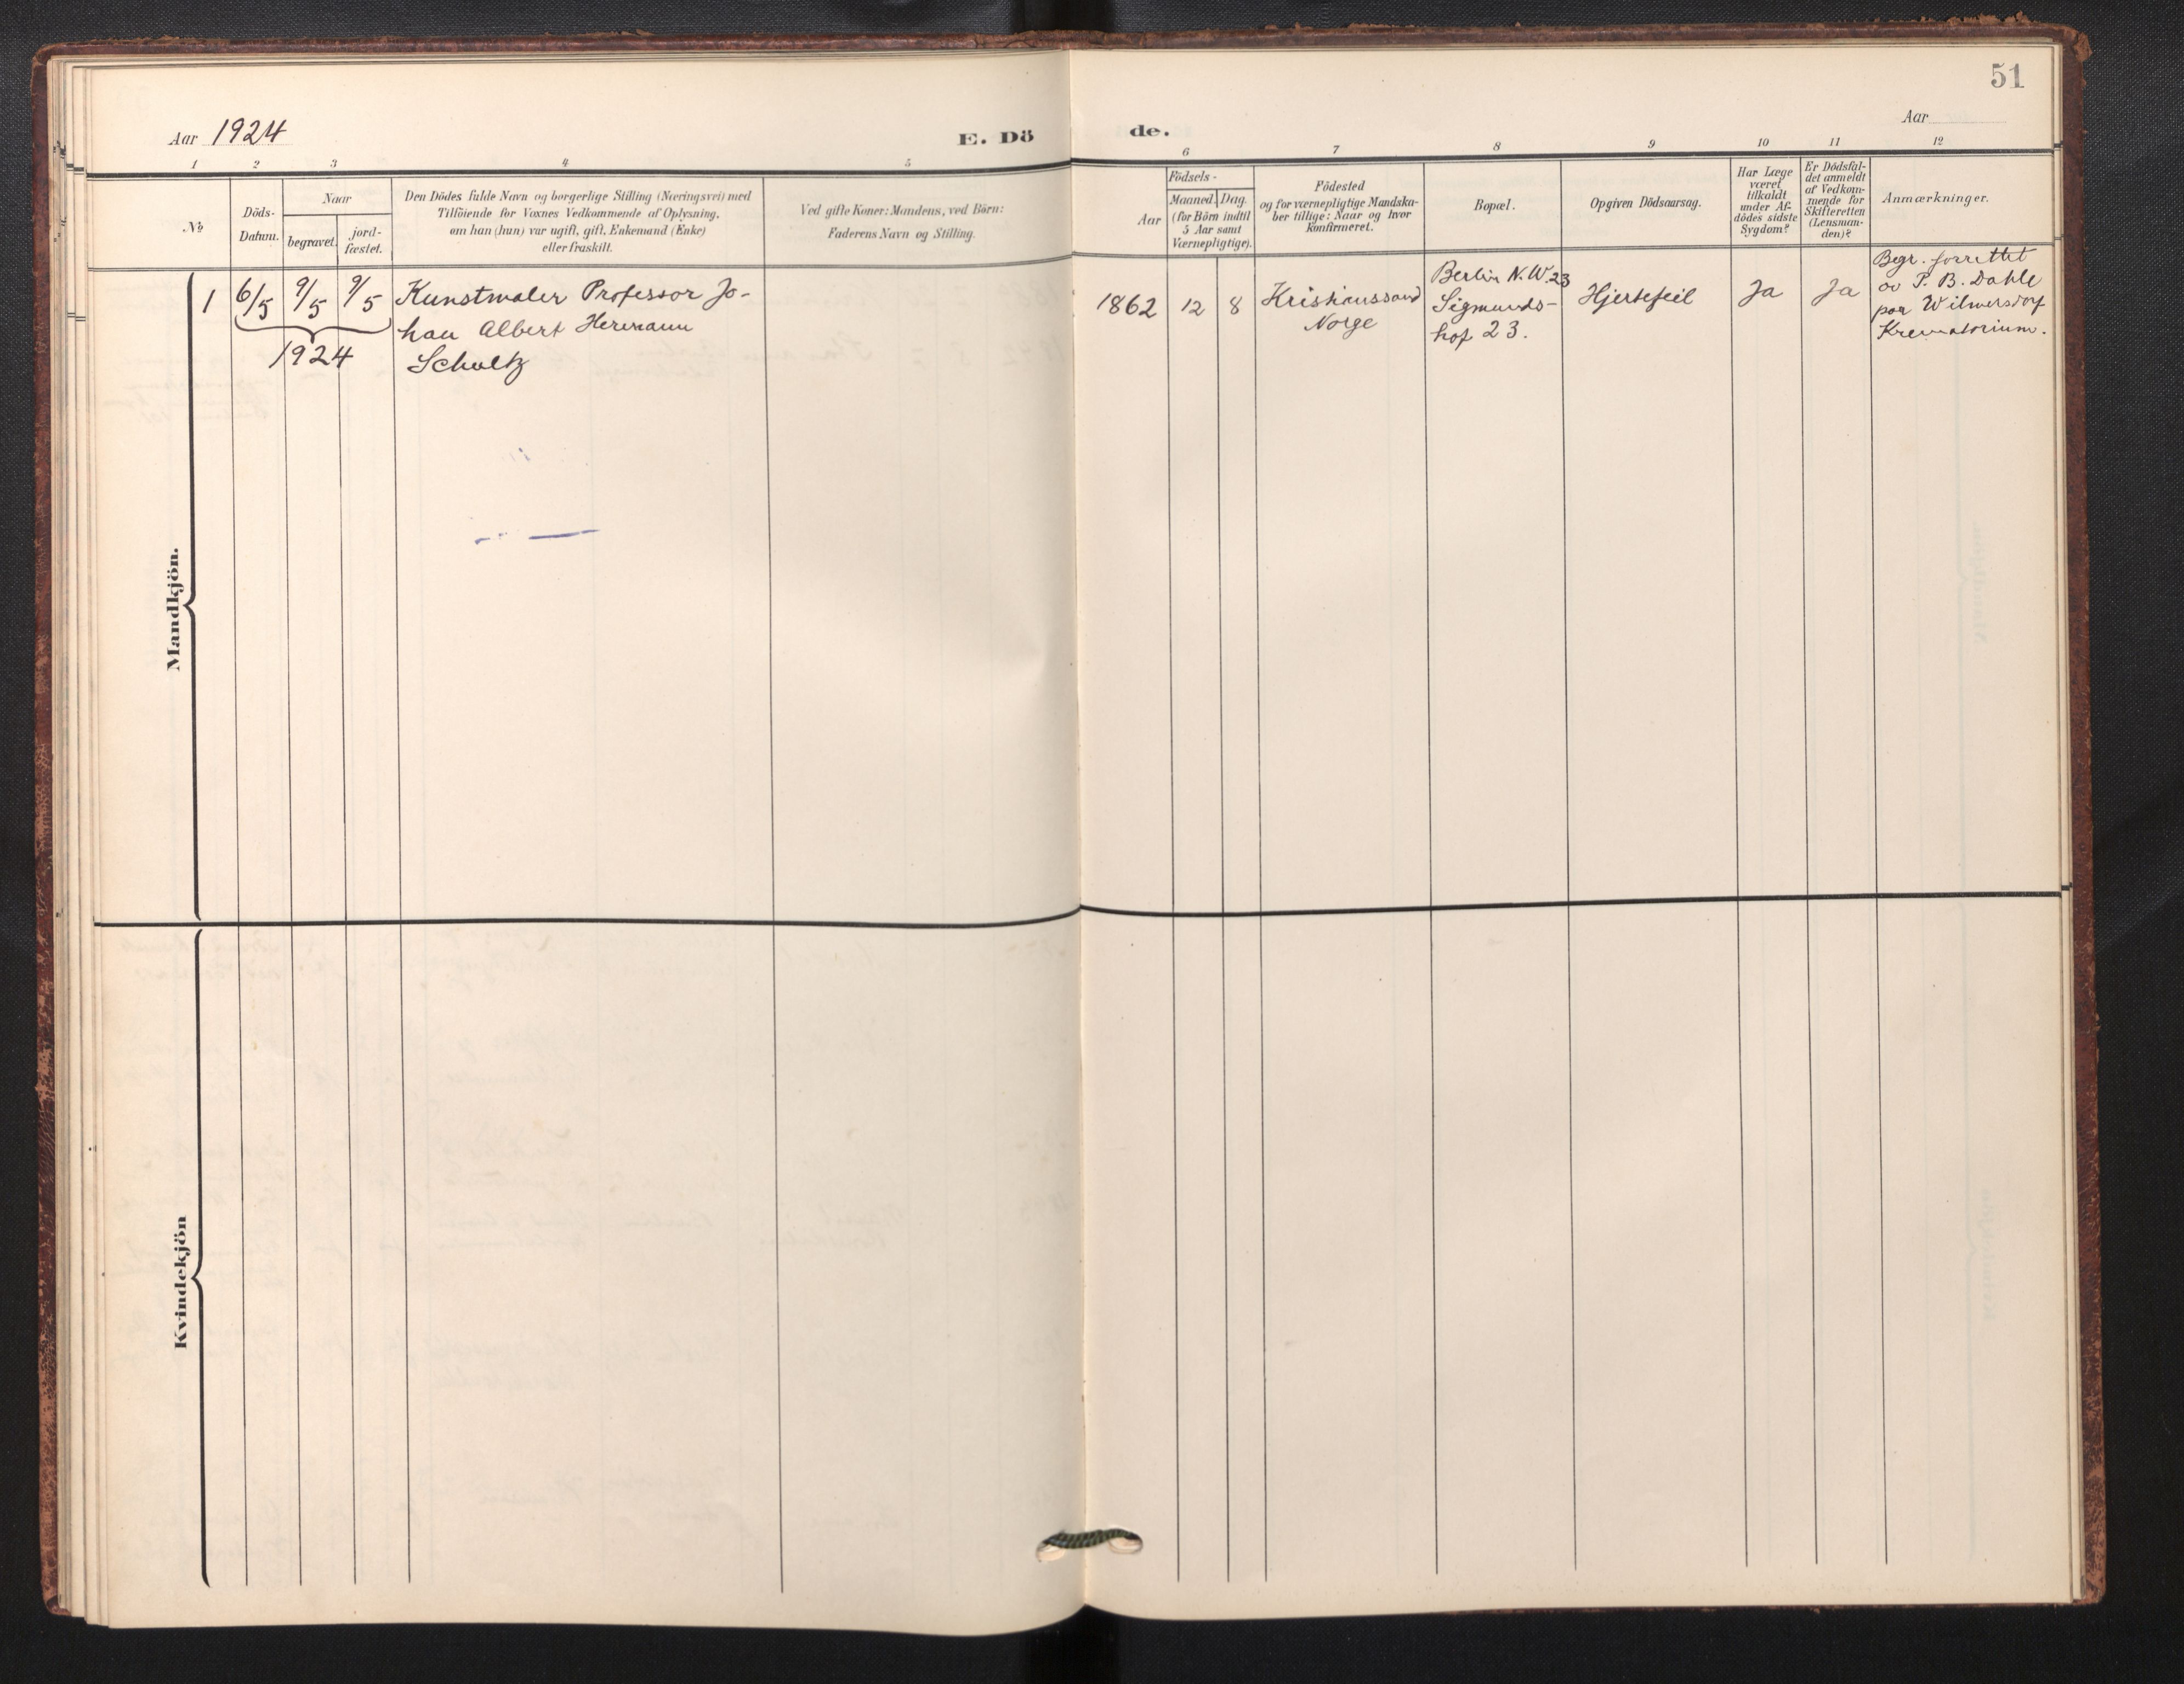 51
Aar 1924
E. Dö
de.
Aar
1 2 3 4 5 6 7 8 9 10 11 12
№
Döds-
Datum.
Naar
begravet.
jord-
fæstet.
Den Dödes fulde Navn og borgerlige Stilling (Næringsvei) med
Tilföiende for Voxnes Vedkommende af Oplysning,
om han (hun) var ugift, gift, Enkemand (Enke)
eller fraskilt.
Ved gifte Koner: Mandens, ved Börn:
Faderens Navn og Stilling.
Födsels-
Aar
Maaned.
Dag.
(for Börn indtil
5 Aar samt
Værnepligtige).
Födested
og for værnepligtige Mandska-
ber tillige: Naar og hvor
konfirmeret.
Bopæl.
Opgiven Dödsaarsag.
Har Læge
været
tilkaldt
under Af-
dödes sidste
Sygdom?
Er Dödsfal-
det anmeldt
af Vedkom-
mende for
Skifteretten
(Lensman-
den)?
Anmærkninger.
Mandkjön.
1
6/5
9/5
9/5
1924
Kunstmaler Professor Jo-
han Albert Hermann
Schultz
1862
12
8
Kristianssand
Norge
Berlin N.W.23
Sigmunds-
hof 23.
Hjertefeil
Ja
Ja
Begr. forrettet
av P. B. Dahle
paa Wilmersdorf
Krematorium.
Kvindekjön